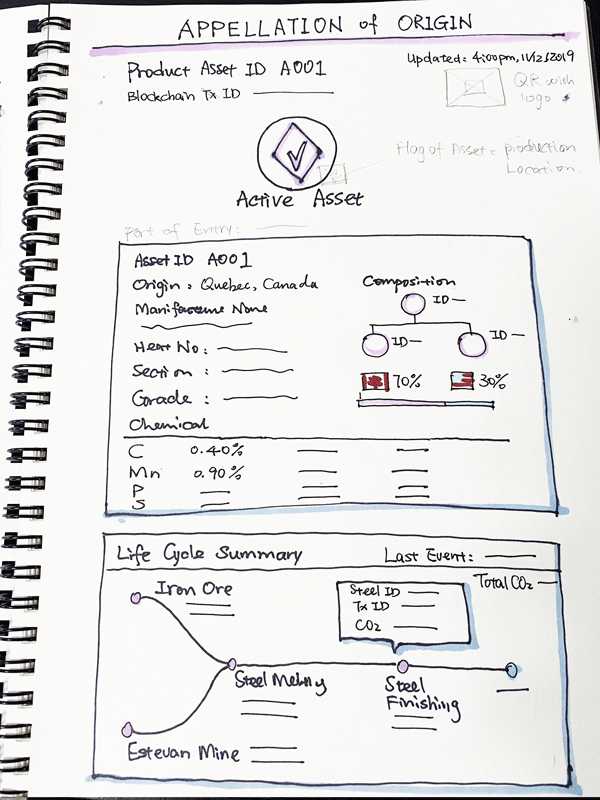 APPELLATION of ORIGIN
Updated: 4:00pm, 11/12/2019
Product Asset ID A001
Blockchain Tx ID
QR with
logo
Flag of Asset = production
Location.
Active Asset
Port of Entry:
Asset ID A001
Origin: Quebec, Canada
Composition
ID
Heat No:
ID
ID
Section:
70%
30%
Grade:
Chemical
C 0.40%
Mn 0.90%
P
S
Life Cycle Summary
Last Event:
Total CO2
Iron Ore
Steel ID
Tx ID
CO2
Steel
Steel
Finishing
Estevan Mine